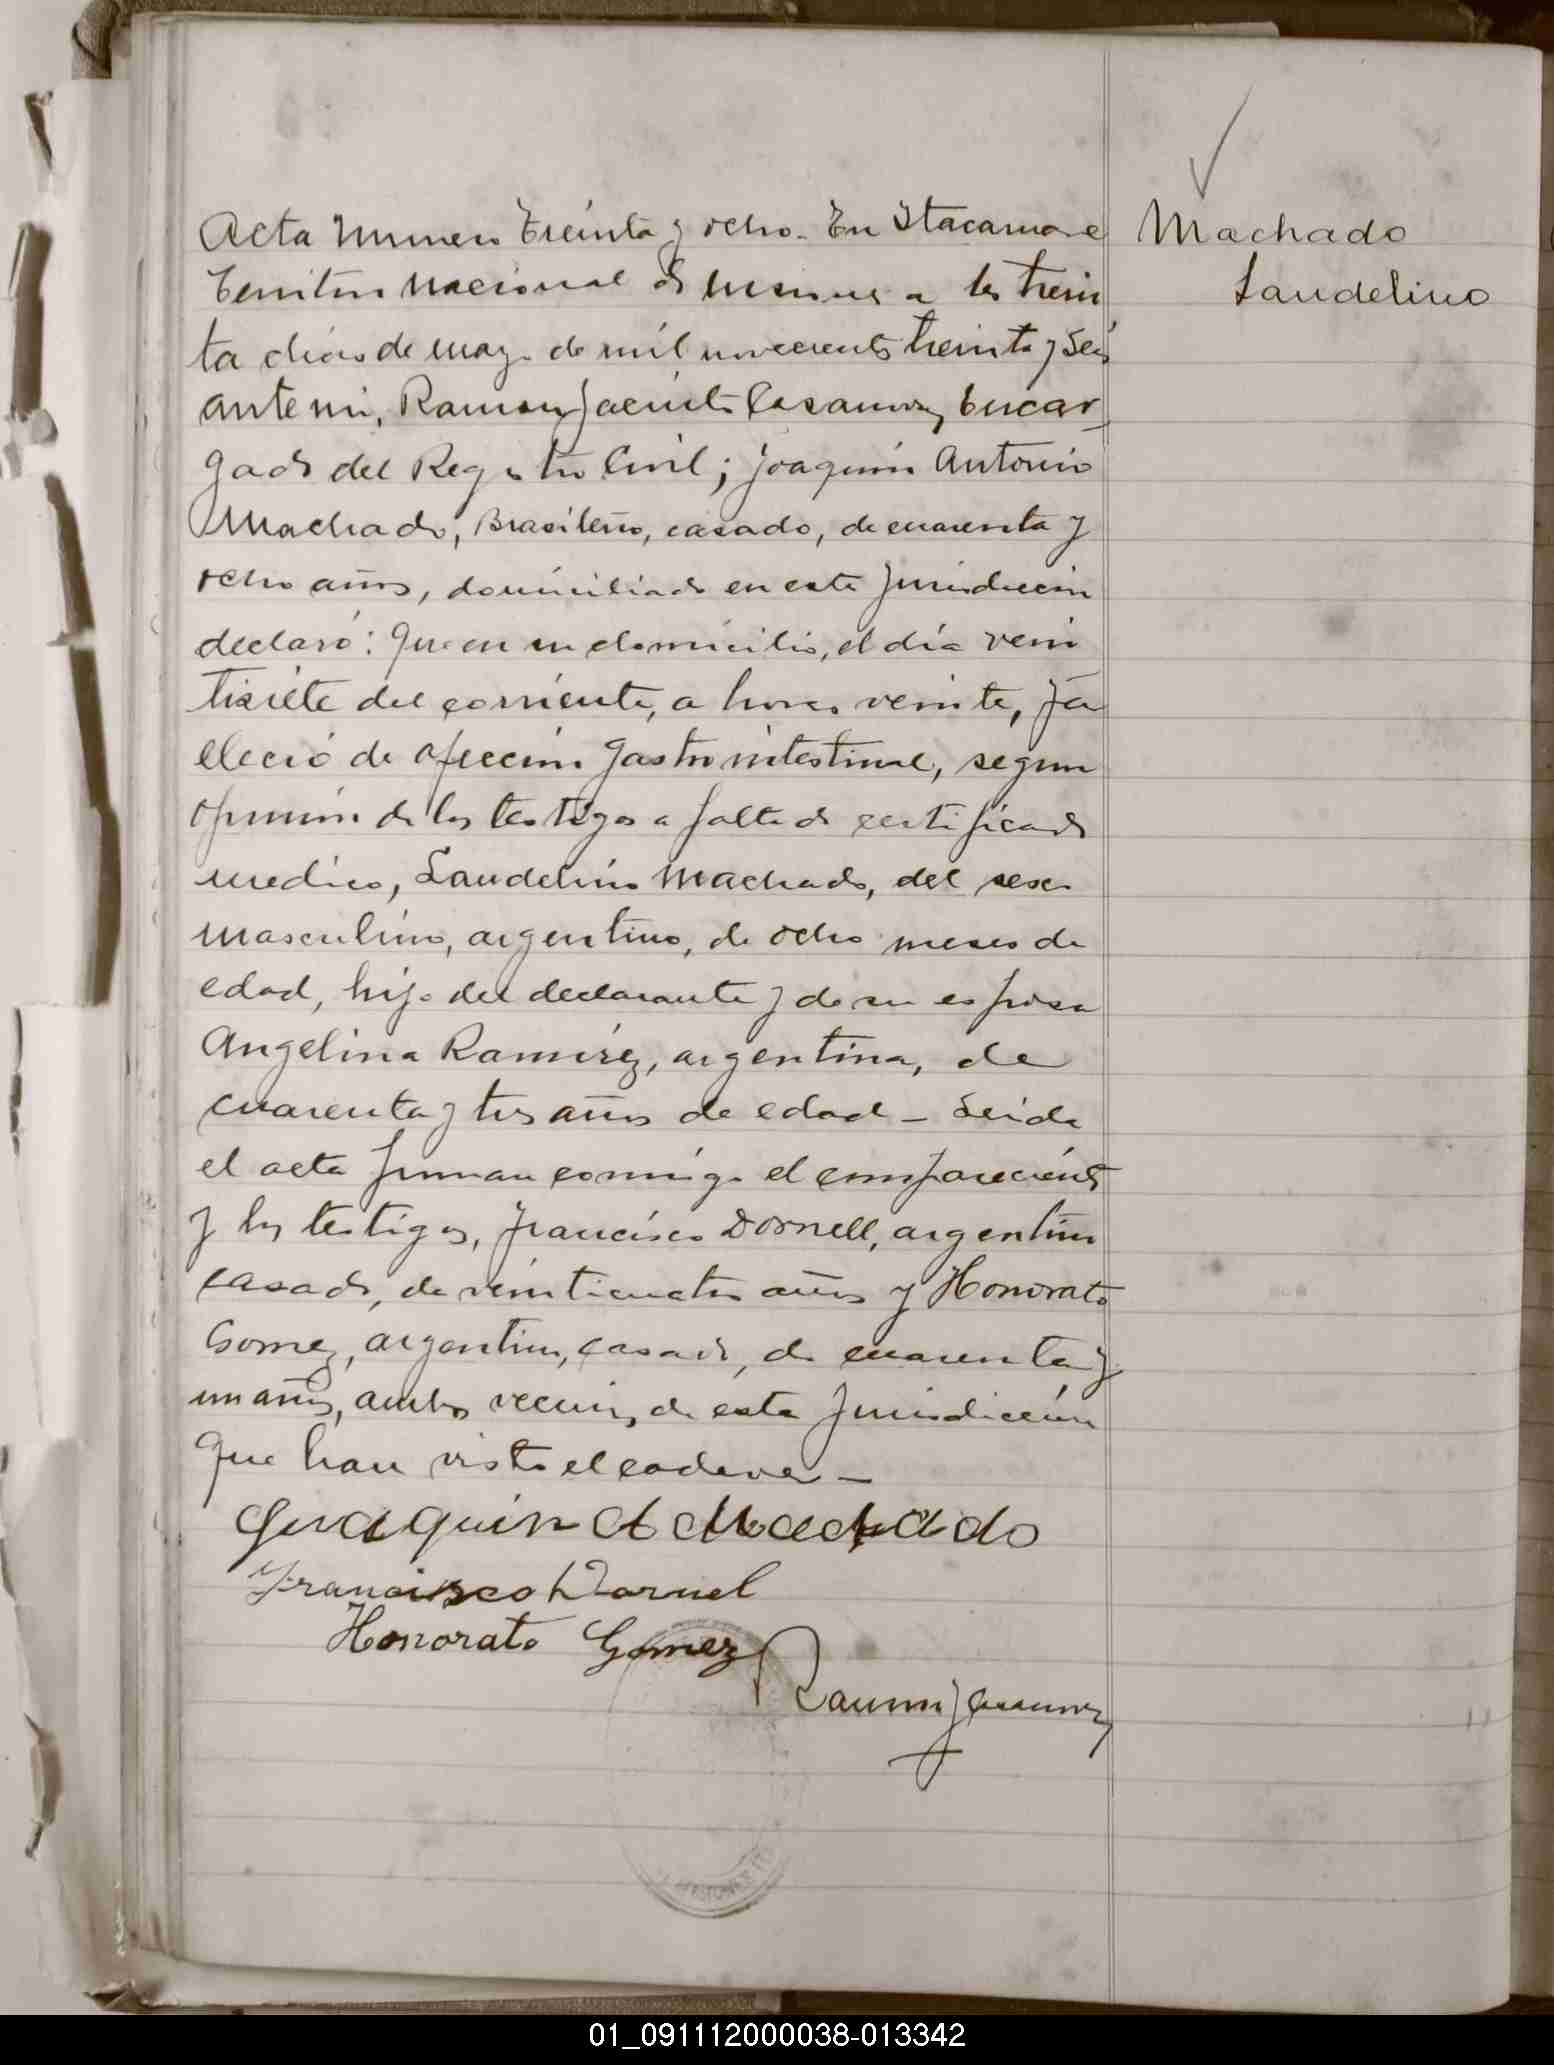 Acta Numero Treinta y ocho. En Itacaruare
Territorio Nacional de Misiones a los trein
ta dias de mayo de mil novecientos treinta y seis
ante mi, Ramon Jacinto Casanova, Encar-
gado del Registro Civil; Joaquin Antonio
Machado, Brasileño, casado, de cuarenta y
ocho años, domiciliado en esta Jurisdiccion
declaró: Que en su domicilio, el día vein
tisiete del corriente, a horas veinte, fa
llecio de afeccion gastro intestinal, segun
opinion de los testigos a falta de certificado
medico, Laudelino Machado, del sexo
masculino, argentino, de ocho meses de
edad, hijo del declarante y de su esposa
Angelina Ramirez, argentina, de
cuarenta y tres años de edad - Leida
el acta firman conmigo el compareciente
y los testigos, Francisco Dornell, argentino
casado, de veinticuatro años y Honorato
Gomez, argentino, casado, de cuarenta y
un años, ambos vecinos de esta Jurisdiccion
que han visto el cadaver -
Juaquin A Machado
Francisco Dornel
Honorato Gomez
Ramon J Casanova
Machado
Laudelino
01_091112000038-013342